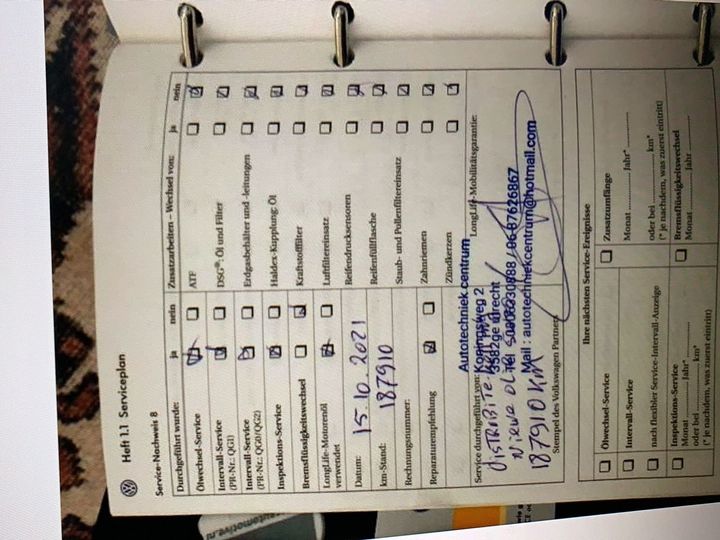 Heft 1.1 Serviceplan
Service-Nachweis 8
Durchgeführt wurde: ja nein
Ölwechsel-Service
Intervall-Service
(PR-Nr.: QG1)
Intervall-Service
(PR-Nr.: QG0/QG2)
Inspektions-Service
Bremsflüssigkeitswechsel
LongLife-Motorenöl
verwendet
Datum: 15.10.2021
km-Stand: 187910
Rechnungsnummer:
Reparaturempfehlung
Zusatzarbeiten – Wechsel von: ja nein
ATF
DSG®: Öl und Filter
Erdgasbehälter und -leitungen
Haldex-Kupplung: Öl
Kraftstofffilter
Luftfiltereinsatz
Reifendrucksensoren
Reifenfüllflasche
Staub- und Pollenfiltereinsatz
Zahnriemen
Zündkerzen
Service durchgeführt von:
LongLife-Mobilitätsgarantie:
Autotechniek centrum
Koningsweg 2
3582ge utrecht
06-87626867
Mail : autotechniekcentrum@hotmail.com
187910 KM
Stempel des Volkswagen Partners
Ihre nächsten Service-Ereignisse
Ölwechsel-Service
Intervall-Service
nach flexibler Service-Intervall-Anzeige
Inspektions-Service
Monat ........ Jahr* ........
oder bei ........ km*
(* je nachdem, was zuerst eintritt)
Zusatzumfänge
Monat ........ Jahr* ........
oder bei ........ km*
(* je nachdem, was zuerst eintritt)
Bremsflüssigkeitswechsel
Monat ........ Jahr ........